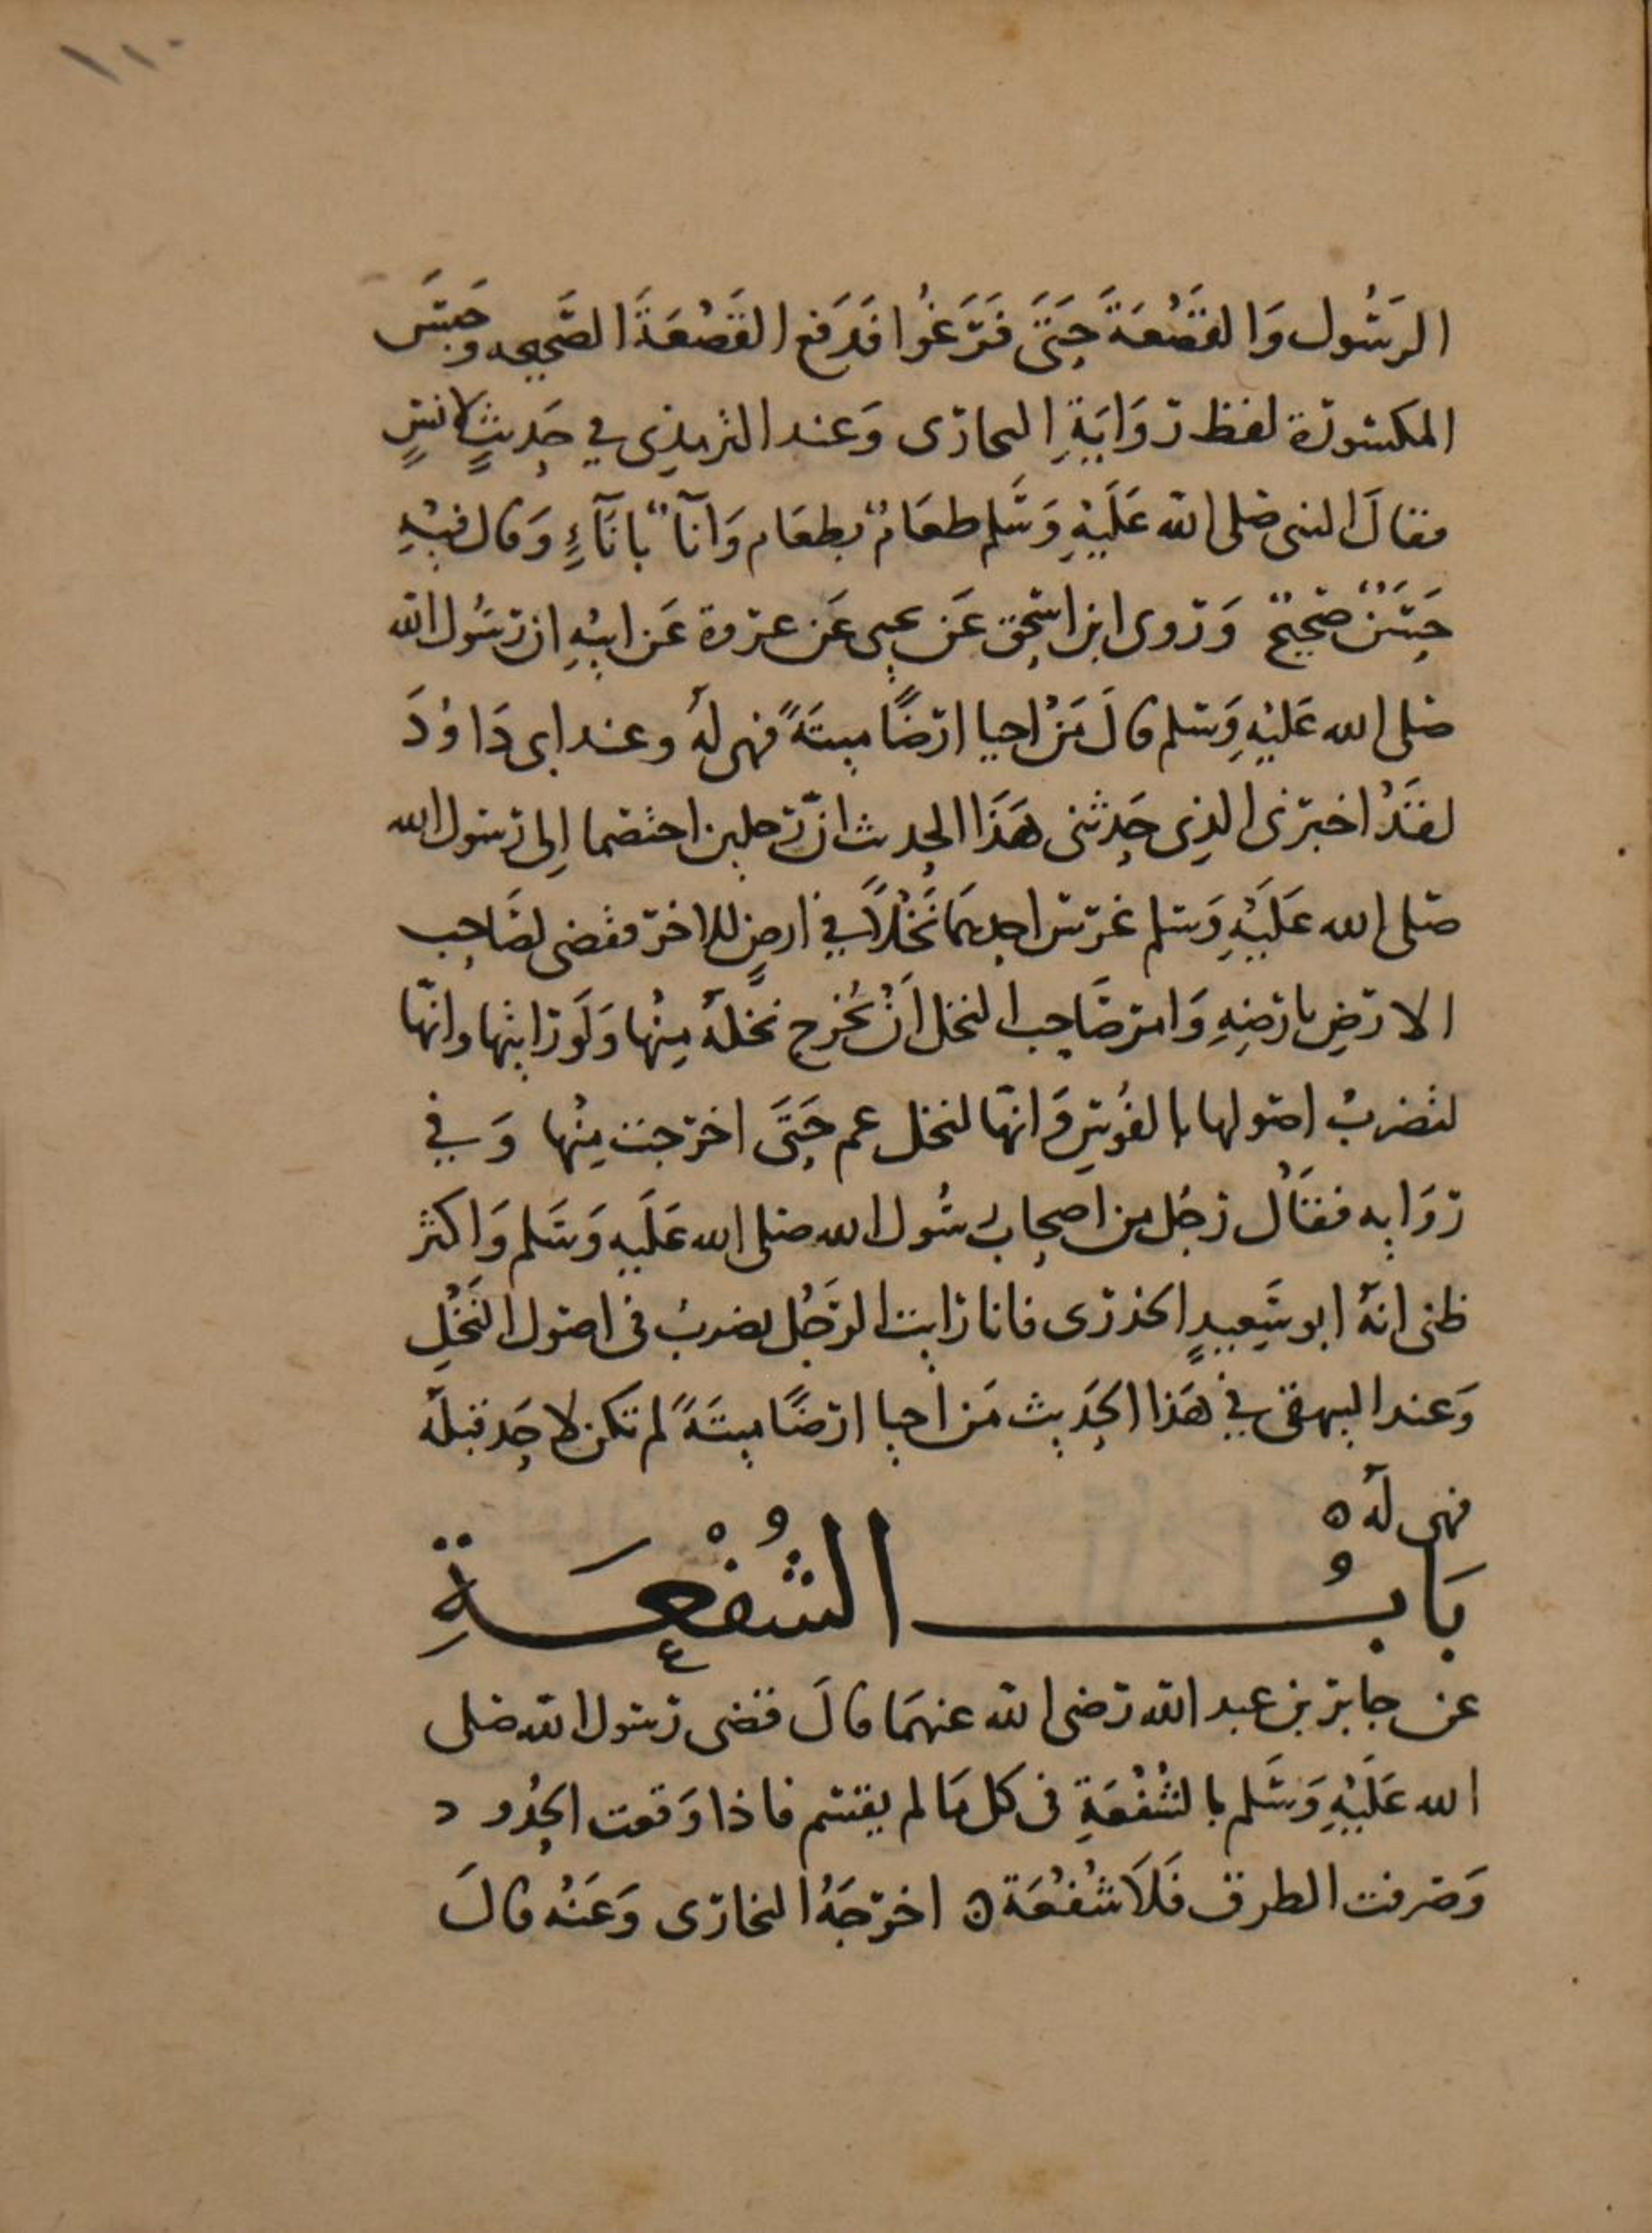 ١١٠
الرَسُول وَالقَصْعَةَ حَتَىَ فَرَغُوا فَدَفع القَصْعَةَ الصَّحيحه وحَبَسَ
المكسورة لفظ روَايَةِ البخارى وَعند الترمذِى في حَدِيثٍ لانسٍ
فقالَ النبى صلى الله عَلَيْهِ وَسَلم طعَامٌ بطعَام وَانآٌ بانآءٍ وَقال فيْهِ
حَسَنٌ صَحيحٌ وَروى ابن اسحق عَن يحيى عَن عروة عَن ابيْهِ ان رسُول الله
صلى الله عَليْهِ وَسلم قالَ مَنْ احيا ارضًا ميتَةً فهى لهُ وعند ابى دَاوُدَ
لقَدْ اخبرنى الذِى حَدثنى هَذَا الحديث انّ رجلين اختصما اِلى رسول الله
صلى الله عَلَيْهِ وَسلم غرس احدهمَا نَخْلاً في ارضٍ للاخر فقضى لصَاحِب
الارضِ بارضِهِ وَامر صَاحِب النخل اَنْ يُخرج نخلهُ مِنْهَا وَلَو رايتها وانّها
لتضربُ اصولها بالفُوسِ وَانهّا لنخل عم حَتَى اخرجت مِنْها وَفي
رَوَايه فقَالْ رَجُل من اصحاب رسُول الله صلى الله عَلَيه وَسَلم وَاكثر
ظنى انهُ ابو سَعِيدٍ الخذرى فانا رايت الرَجُل يضربُ فى اصول النَخْلِ
وَعند البيهقى في هَذا الحَدِيث مَن احيا ارضًا ميتَةً لم تكن لاحَد قبلهُ
فهى لهُ ه
بَابُ الشُفْعَةِ
عن جابر بن عبد الله رضى الله عنهمَا قالَ قضى رسول الله صلى
الله عَلَيْهِ وَسَلم بالشُفْعَةِ فى كل مَا لم يقسم فاذا وَقعت الحُدود
وَصرفت الطرق فَلاَ شُفْعَة ه اخرجَهُ البخارى وَعَنْه قالَ